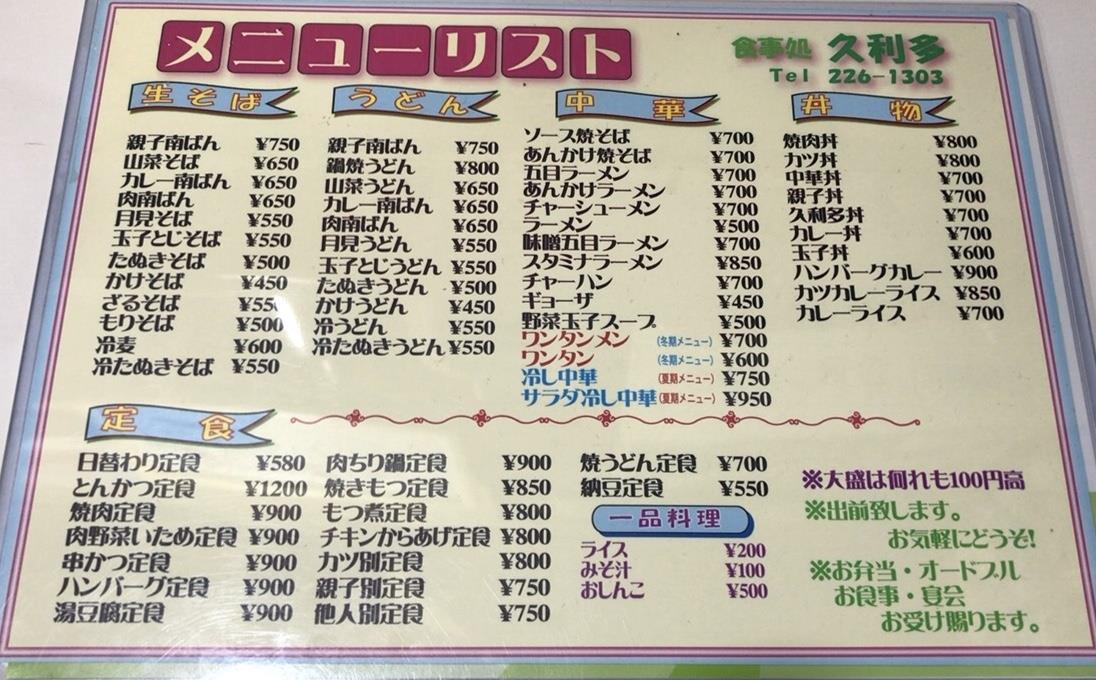 メニューリスト
食事処 久利多
Tel 226-1303
生そば
親子南ばん ¥750
山菜そば ¥650
カレー南ばん ¥650
肉南ばん ¥650
月見そば ¥550
玉子とじそば ¥550
たぬきそば ¥500
かけそば ¥450
ざるそば ¥550
もりそば ¥500
冷麦 ¥600
冷たぬきそば ¥550
うどん
親子南ばん ¥750
鍋焼うどん ¥800
山菜うどん ¥650
カレー南ばん ¥650
肉南ばん ¥650
月見うどん ¥550
玉子とじうどん ¥550
たぬきうどん ¥500
かけうどん ¥450
冷うどん ¥550
冷たぬきうどん ¥550
中華
ソース焼そば ¥700
あんかけ焼そば ¥700
五目ラーメン ¥700
あんかけラーメン ¥700
チャーシューメン ¥700
ラーメン ¥500
味噌五目ラーメン ¥700
スタミナラーメン ¥850
チャーハン ¥700
ギョーザ ¥450
野菜玉子スープ ¥500
ワンタンメン (冬期メニュー) ¥700
ワンタン (冬期メニュー) ¥600
冷し中華 (夏期メニュー) ¥750
サラダ冷し中華 (夏期メニュー) ¥950
丼物
焼肉丼 ¥800
カツ丼 ¥800
中華丼 ¥700
親子丼 ¥700
久利多丼 ¥700
カレー丼 ¥700
玉子丼 ¥600
ハンバーグカレー ¥900
カツカレーライス ¥850
カレーライス ¥700
定食
日替わり定食 ¥580
とんかつ定食 ¥1200
焼肉定食 ¥900
肉野菜いため定食 ¥900
串かつ定食 ¥900
ハンバーグ定食 ¥900
湯豆腐定食 ¥900
肉ちり鍋定食 ¥900
焼きもつ定食 ¥850
もつ煮定食 ¥800
チキンからあげ定食 ¥800
カツ別定食 ¥800
親子別定食 ¥750
他人別定食 ¥750
焼うどん定食 ¥700
納豆定食 ¥550
一品料理
ライス ¥200
みそ汁 ¥100
おしんこ ¥500
※大盛は何れも100円高
※出前致します。
お気軽にどうぞ!
※お弁当・オードブル
お食事・宴会
お受け賜ります。